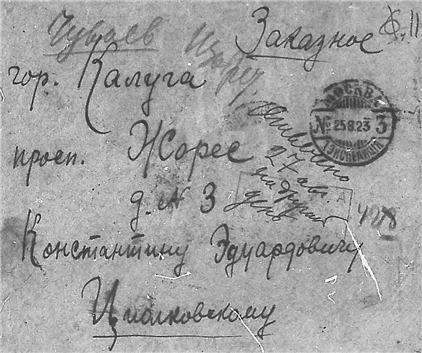 Чуваев
Заказное
гор. Калуга
просп. Жорес
д. № 3
Константину Эдуардовичу
Циолковскому
МОСКВА
№ 25.8.23 3
Отвечено
27 авг.
на другой
день